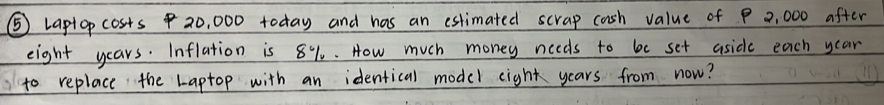 ⑤ Laptop costs ₱ 20,000 today and has an estimated scrap cash value of ₱ 2,000 after
eight years. Inflation is 8%. How much money needs to be set aside each year
to replace the Laptop with an identical model eight years from now?